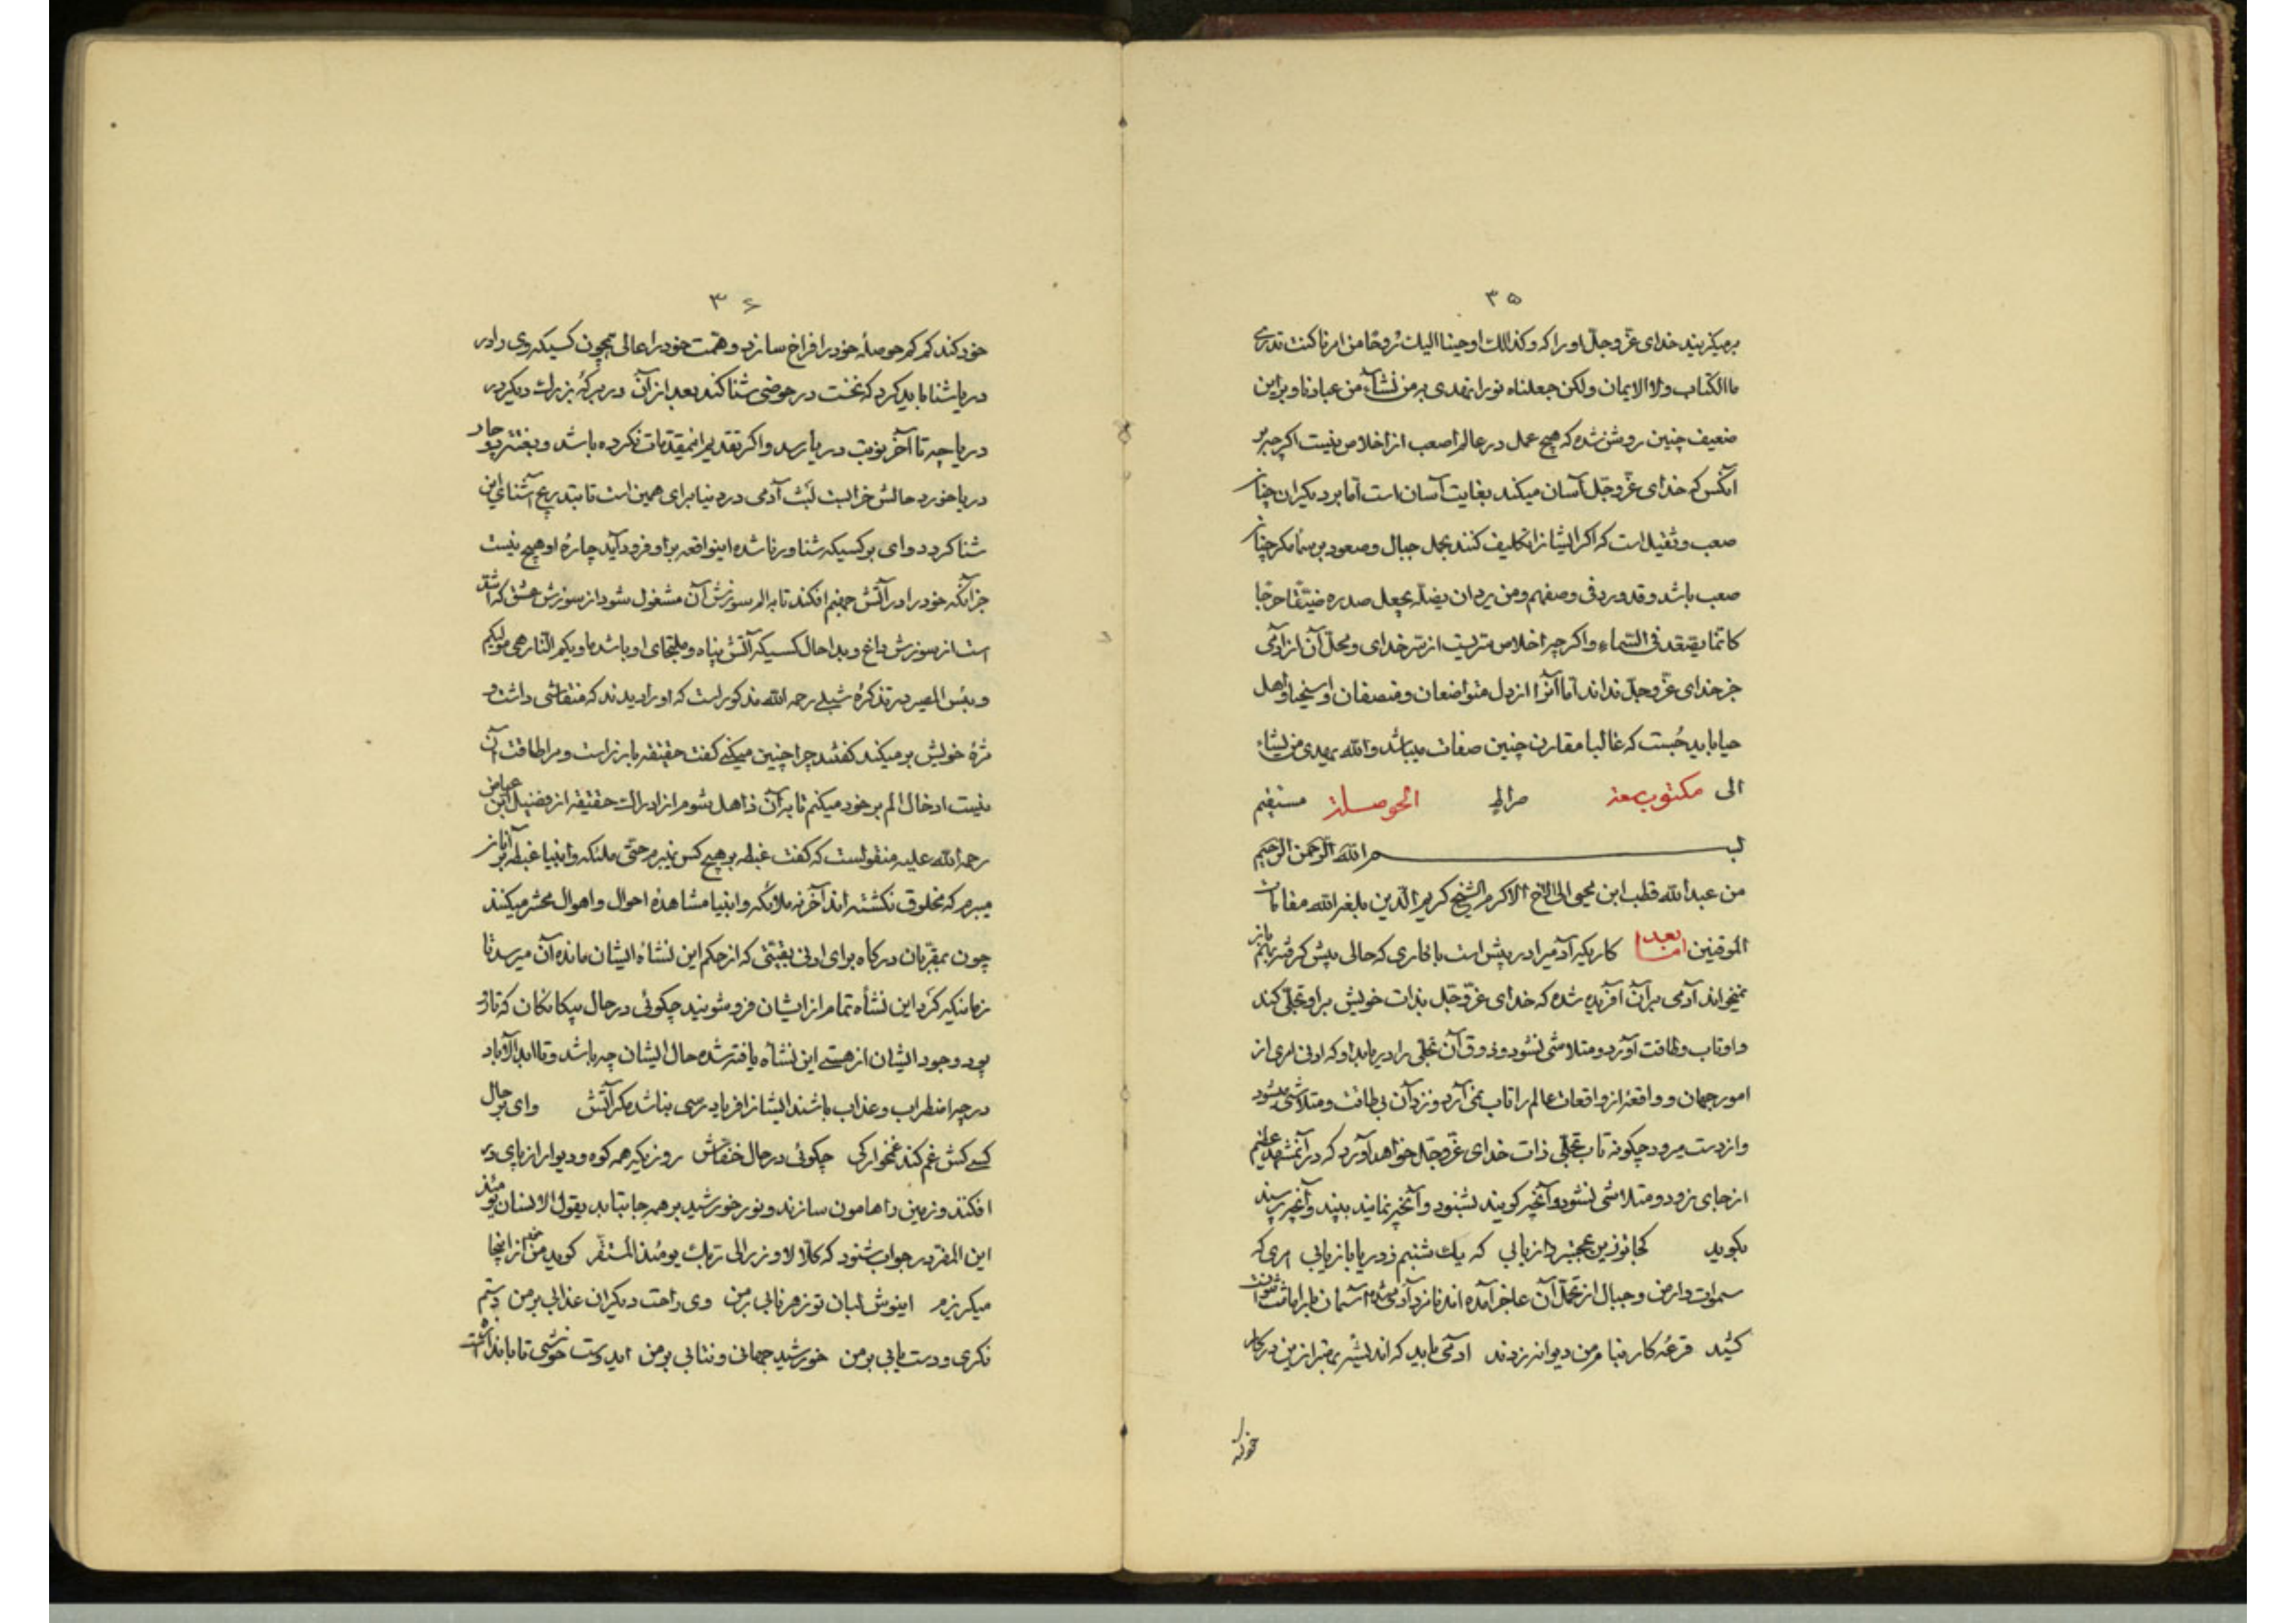 ۳۵
برمیگزیند خدای عزّ و جلّ او را که و کذالك اوحینا الیك رُوحًا من امرنا کنت تدری
ماالکتاب ولا الایمان ولکن جعلناه نورا نهدی به من نشآء من عبادنا و براین
ضعیف چنین روشن شده که هیچ عمل در عالم اصعب از اخلاص نیست اکرچه بر
آنکس که خدای عزّ و جلّ آسان میکند بغایت آسان است امّا بر دیکران چنان
صعب و ثقیل است که اکر ایشانرا تکلیف کنند بحمل جبال و صعود بر سما مکر چنان
صعب باشد و قد ورد فی وصفهم و من یرد ان یضلّه یجعل صدره ضیّقا حرجا
کانّما یصّعّد فی السّماء و اکرچه اخلاص سرّیست از سرّ خدای و محلّ آن از آدمی
جز خدای عزّ و جلّ نداند امّا آنرا از دل متواضعان و منصفان و اسخیا و اهل
حیا باید جُست که غالبا مقارن چنین صفات میباشد والله یهدی من یشاء
الی مکتوب سعة صراط الحوصلة مستقیم
بسم الله الرّحمن الرّحیم
من عبدالله قطب ابن محیی الی الاخ الاکرم الشیخ کریم الدّین بلغه الله مقامات
الموقنین امّا بعد کاریکه آدمیرا در پیش است با کاری که حالی پیش کرفته باز
نمیخواند آدمی برآن آفریده شده که خدای عزّ و جلّ بذات خویش براو تجلّی کند
و او تاب و طاقت آورد و متلاشی نشود و ذوق آن تجلّی را دریابد او که ادنی امری از
امور جهان و واقعهٔ از واقعات عالم را تاب نمی آرد و نزد آن بی طاقت و متلاشی میشود
و از دست میرود چکونه تاب تجلّی ذات خدای عزّ و جلّ خواهد آورد که در آنمشهد عظیم
از جای نرود و متلاشی نشود و آنچه کویند بشنود و آنچه نمایند ببیند و آنچه پرسند
بکوید کجا توزین عجبتر داز یابی که یك شبنم ز دریا بازیابی امری که
سموات و ارض و جبال از تحمّل آن عاجز آمده اند نامزد آدمی شده آسمان بار امانت نتوانست
کشید قرعهٔ کار بنام من دیوانه زدند آدمی باید که اندیشه بهتر از این در کار
خود کند
۳۶
خود کند کم کم حوصلهٔ خود را فراخ سازد و همّت خود را عالی همچون کسیکه روی دارد در
دریا شنا باید کرد که نخست در حوضی شنا کند بعد از آن در برکهٔ بزرك دیکر در
دریاچه تا آخر نوبت دریا رسد و اکر تقدیم اینمقدّمات نکرده باشد و بغتة دوچار
دریا خورد حالش خرابست لبث آدمی در دنیا برای همین است تا بتدریج آشنای این
شنا کردد وای بر کسیکه شناور ناشده اینواقعه براو فرود آید چارهٔ او هیچ نیست
جز آنکه خود را در آتش جهنّم افکند تا به الم سوزش آن مشغول شود از سوزش عشق که اشدّ
است از سوزش داغ و بدا حال کسیکه آتش پناه و ملتجای او باشد ماویکم النّار هی مولیکم
و بئس المصیر در تذکرهٔ شبلی رحمه الله مذکور است که او را دیدند که منقاشی داشت و
مژهٔ خویش بر میکند کفتند چرا چنین میکنی کفت حقیقه بارز است و مرا طاقت آن
نیست ادخال الم بر خود میکنم تا به آن ذاهل شوم از ادراك حقیقة از فضیل ابن عیاض
رحمه الله علیه منقولست که کفت غبطه بر هیچ کس نبرم حتّی ملئکه و انبیا غبطه بر آنان
میبرم که مخلوق نکشته اند آخر نه ملائکه و انبیا مشاهدهٔ احوال و اهوال محشر میکنند
چون بمقرّبان درکاه برای ادنی بقیّتی که از حکم این نشاه ایشان مانده آن میرسد تا
زمانیکه کرد این نشأه تمام از ایشان فرو شویند چکوئی در حال بیکانکان که تار و
پود وجود ایشان از هستی این نشأه یافته شده حال ایشان چه باشد و تا ابد الآباد
در چه اضطراب و عذاب باشند ایشانرا فریاد رسی نباشد مکر آتش وای بر حال
کسی کش غم کند غمخوارکی چکوئی در حال خفّاش روزیکه همه کوه و دیوار از پای در
افکند و زمین را هامون سازند و نور خورشید بر همه جا بتابد یقول الانسان یومئذ
این المفر در جواب شنود که کلّا لا وزر الی ربّك یومئذ المستقّر کوید من خیز از اینجا
میکریزم اینوش لبان تو زهر نابی بر من وی راحت دیکران عذابی بر من دستم
نکری و دست یابی بر من خورشید جهانی و نتابی بر من ایدوست خوشی تا باندازه است